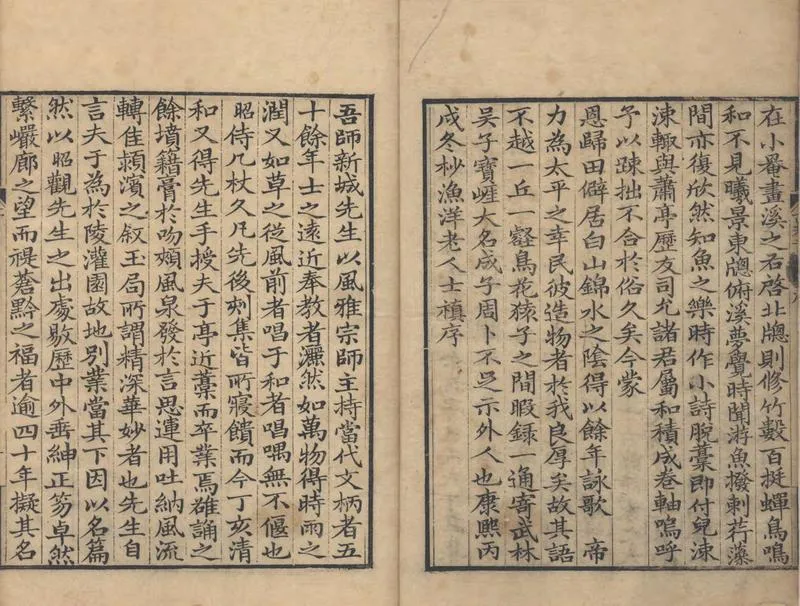 在小番畫溪之石啓北牕則修竹數百挺蟬鳥鳴
和不見曦景東牕俯溪夢覺時聞游魚撥剌荇藻
間亦復欣然知魚之樂時作小詩脫藁即付兒涑
涑輙與蕭亭歷友司允諸君屬和積成卷軸嗚呼
予以踈拙不合於俗久矣今蒙
恩歸田僻居白山錦水之陰得以餘年詠歌　帝
力為太平之幸民彼造物者於我良厚矣故其語
不越一丘一壑鳥花猿子之間暇録一通寄武林
吴子寶崖大名成子周卜不足示外人也康熙丙
戌冬杪漁洋老人士禛序
吾師新城先生以風雅宗師主持當代文柄者五
十餘年士之遠近奉教者灑然如萬物得時雨之
潤又如草之從風前者唱于和者唱喁無不偃也
昭侍几杖久凡先後刻集皆所寢饋而今丁亥清
和又得先生手授夫于亭近藁而卒業焉雖誦之
餘墳籍膏於吻頰風泉發於言思運用吐納風流
轉佳頼濱之叙玉局所謂精深華妙者也先生自
言夫于為於陵灌園故地別業當其下因以名篇
然以昭觀先生之出處敭歷中外垂紳正笏卓然
繫巖廊之望而禔蒼黔之福者逾四十年擬其名